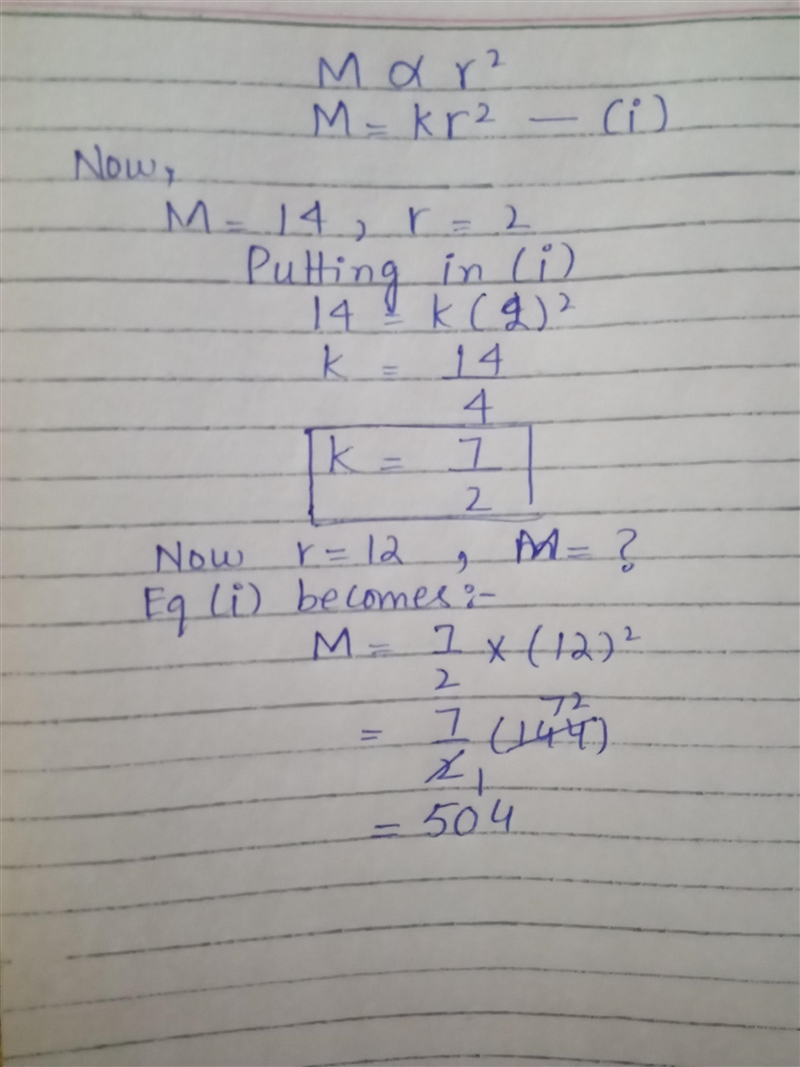 M ∝ r²
M = kr² — (i)
Now,
M = 14 , r = 2
Putting in (i)
14 = k (2)²
k = 14/4
k = 7/2
Now r = 12 , M = ?
Eq (i) becomes :-
M = 7/2 × (12)²
= 7/2 (144) 72 1
= 504